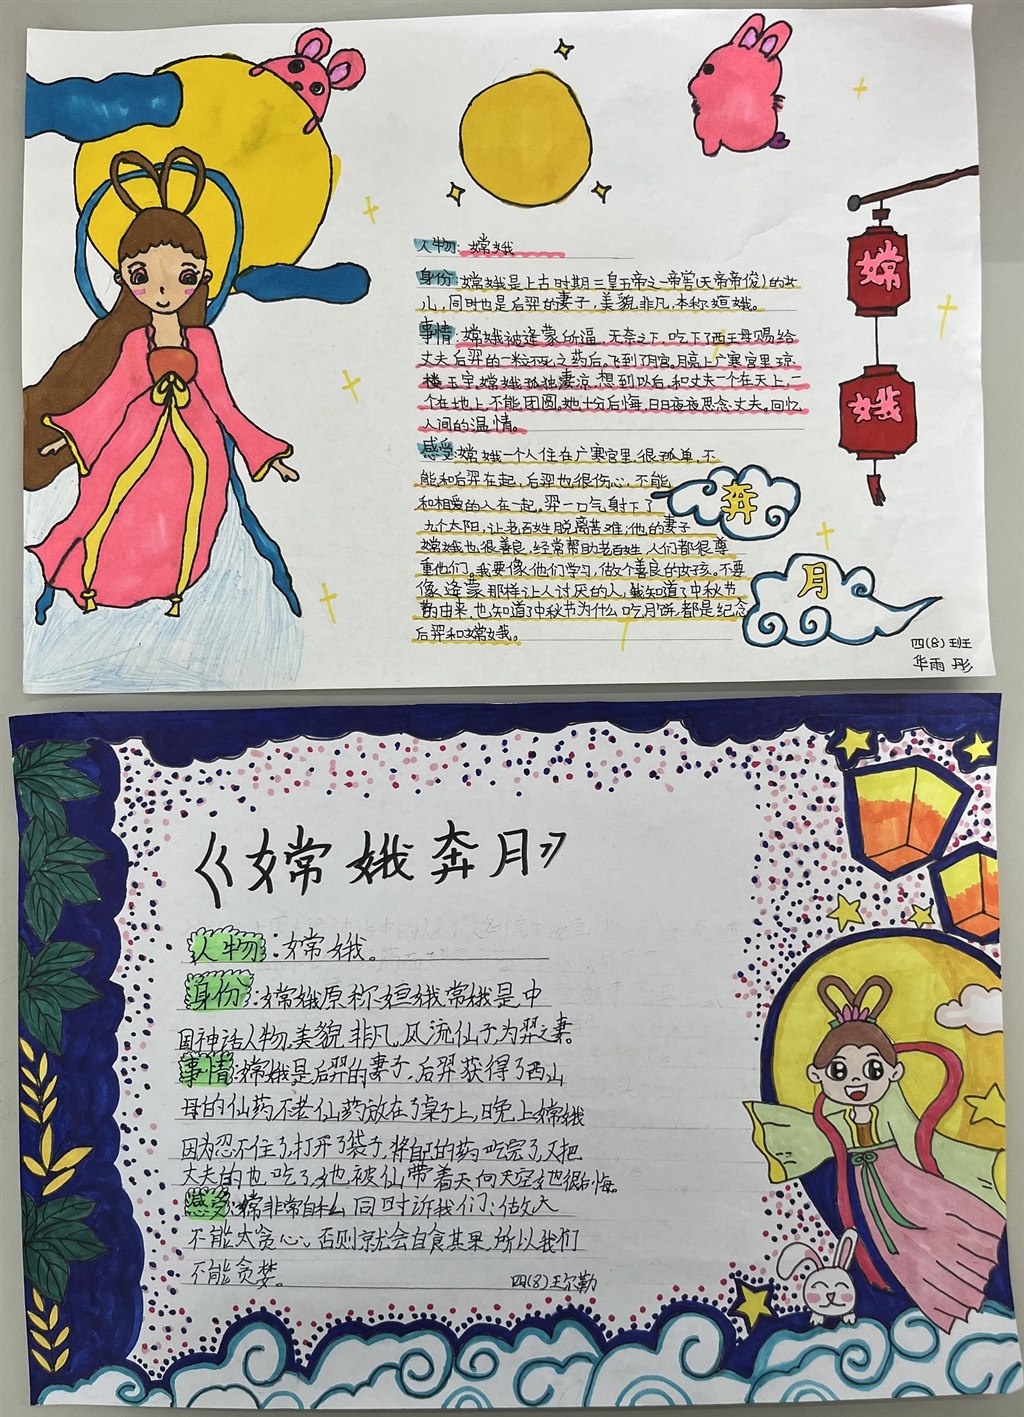 人物：嫦娥
身份：嫦娥是上古时期三皇五帝之一帝喾(天帝帝俊)的女
儿，同时也是后羿的妻子，美貌非凡，本称姮娥。
事情：嫦娥被逢蒙所逼，无奈之下，吃下了西王母赐给
丈夫后羿的一粒不死之药后。飞到了月宫。月亮上广寒宫里琼
楼玉宇，嫦娥孤独凄凉，想到以后，和丈夫一个在天上，一
个在地上，不能团圆。她十分后悔，日日夜夜思念丈夫。回忆
人间的温情。
感受：嫦娥一个人住在广寒宫里，很孤单，不
能和后羿在起，后羿也很伤心，不能
和相爱的人在一起。羿一口气身下了
九个太阳，让老百姓脱离苦难；他的妻子
嫦娥也很善良，经常帮助老百姓，人们都很尊
重他们。我要像他们学习，做个善良的女孩。不要
像逢蒙那样让人讨厌的人，我知道了中秋节
的由来，也知道了中秋节为什么吃月饼，都是纪念
后羿和嫦娥。
嫦
娥
奔
月
四(8)班
华雨彤
《嫦娥奔月》
人物：嫦娥。
身份：嫦娥原称姮娥，嫦娥是中
国神话人物，美貌非凡，风流仙子为羿之妻。
事情：嫦娥是后羿的妻子，后羿获得了西山
母的仙药，不老仙药放在了桌子上，晚上嫦娥
因为忍不住了，打开了袋子，将自己的药吃完了，又把
丈夫的也吃了，她被仙带着天向天空她很后悔。
感受：嫦非常自私，同时诉我们：做人
不能太贪心，否则就会自食其果，所以我们
不能贪婪。
四(8)王尔勒